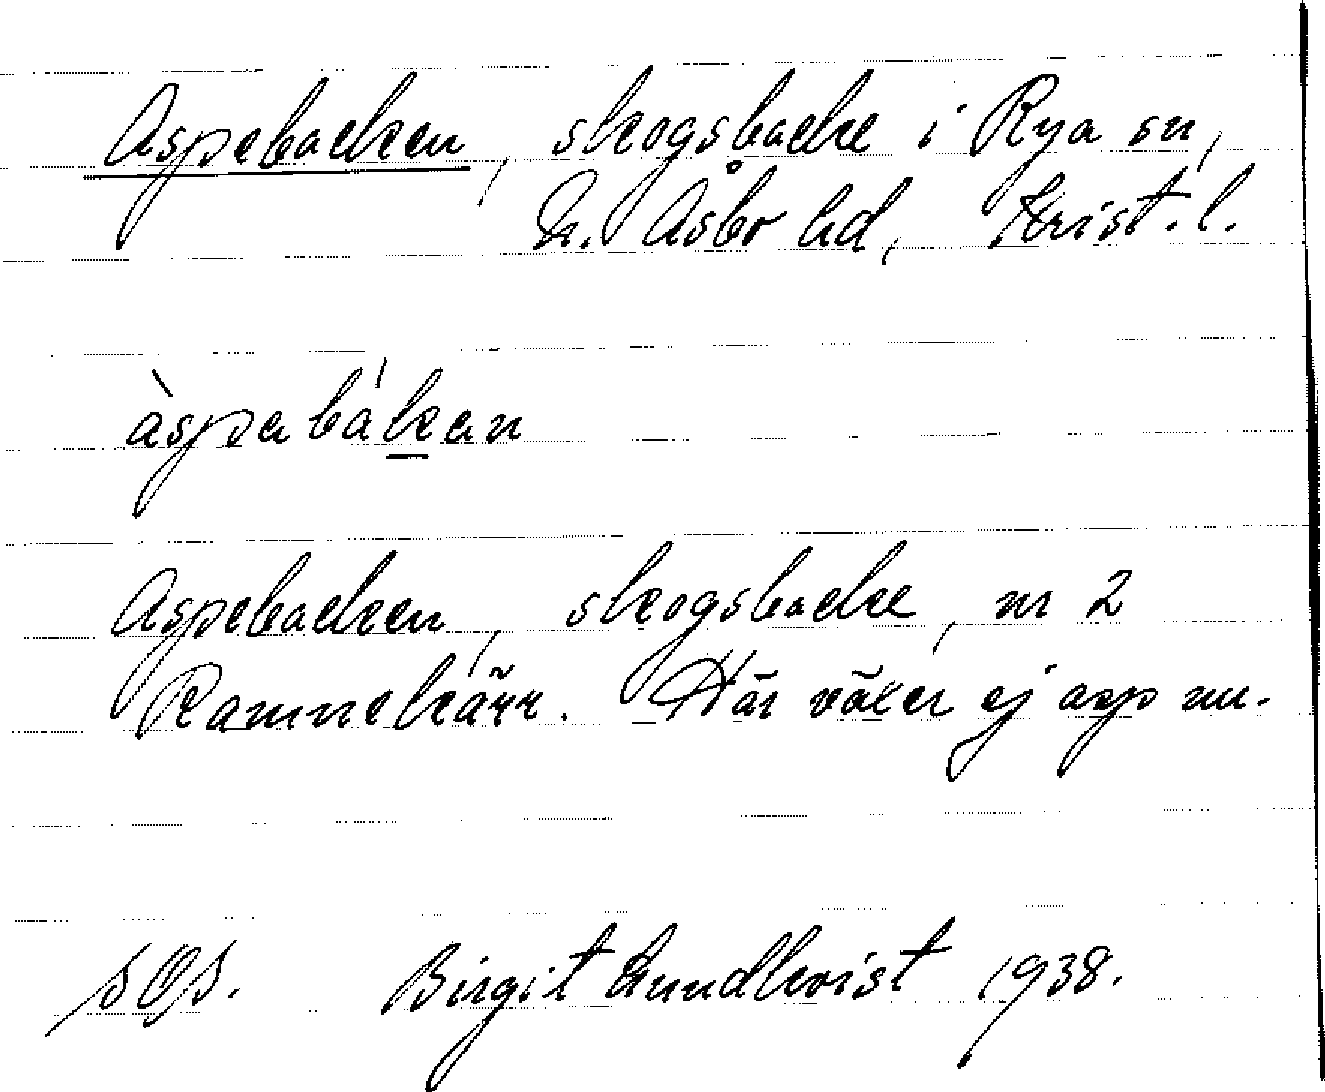 Aspebacken, skogsbacke i Rya sn,
N. Åsbo hd, Krist. l.
àspabákan
Aspebacken, skogsbacke, nr 2
Ramnekärr. Här växer ej asp nu.
Birgit Lundkvist 1938.